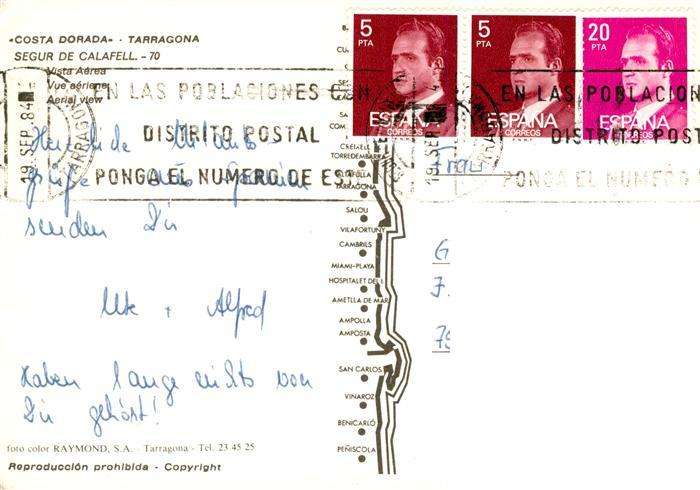 «COSTA DORADA» - TARRAGONA
SEGUR DE CALAFELL. - 70
Vista Aérea
Vue aérienne
Aerial view
19 SEP. 84
TARRAGONA
EN LAS POBLACIONES CON
DISTRITO POSTAL
PONGA EL NUMERO DE ES
Herzliche Urlaubs-
grüße aus Spanien
senden Dir
Ute + Alfred
Haben lange nichts von
Dir gehört!
foto color RAYMOND, S.A. - Tarragona - Tel. 23 45 25
Reproducción prohibida - Copyright
CREIXELL
TORREDEMBARRA
ALTAFULLA
TARRAGONA
SALOU
VILAFORTUNY
CAMBRILS
MIAMI-PLAYA
HOSPITALET DE L I.
AMETLLA DE MAR
AMPOLLA
AMPOSTA
SAN CARLOS
VINAROZ
BENICARLÓ
PEÑISCOLA
5 PTA
ESPAÑA
CORREOS
5 PTA
ESPAÑA
CORREOS
20 PTA
ESPAÑA
CORREOS
19 SEP. 84
EN LAS POBLACIONES
DISTRITO POST
PONGA EL NUMERO
G
J.
75